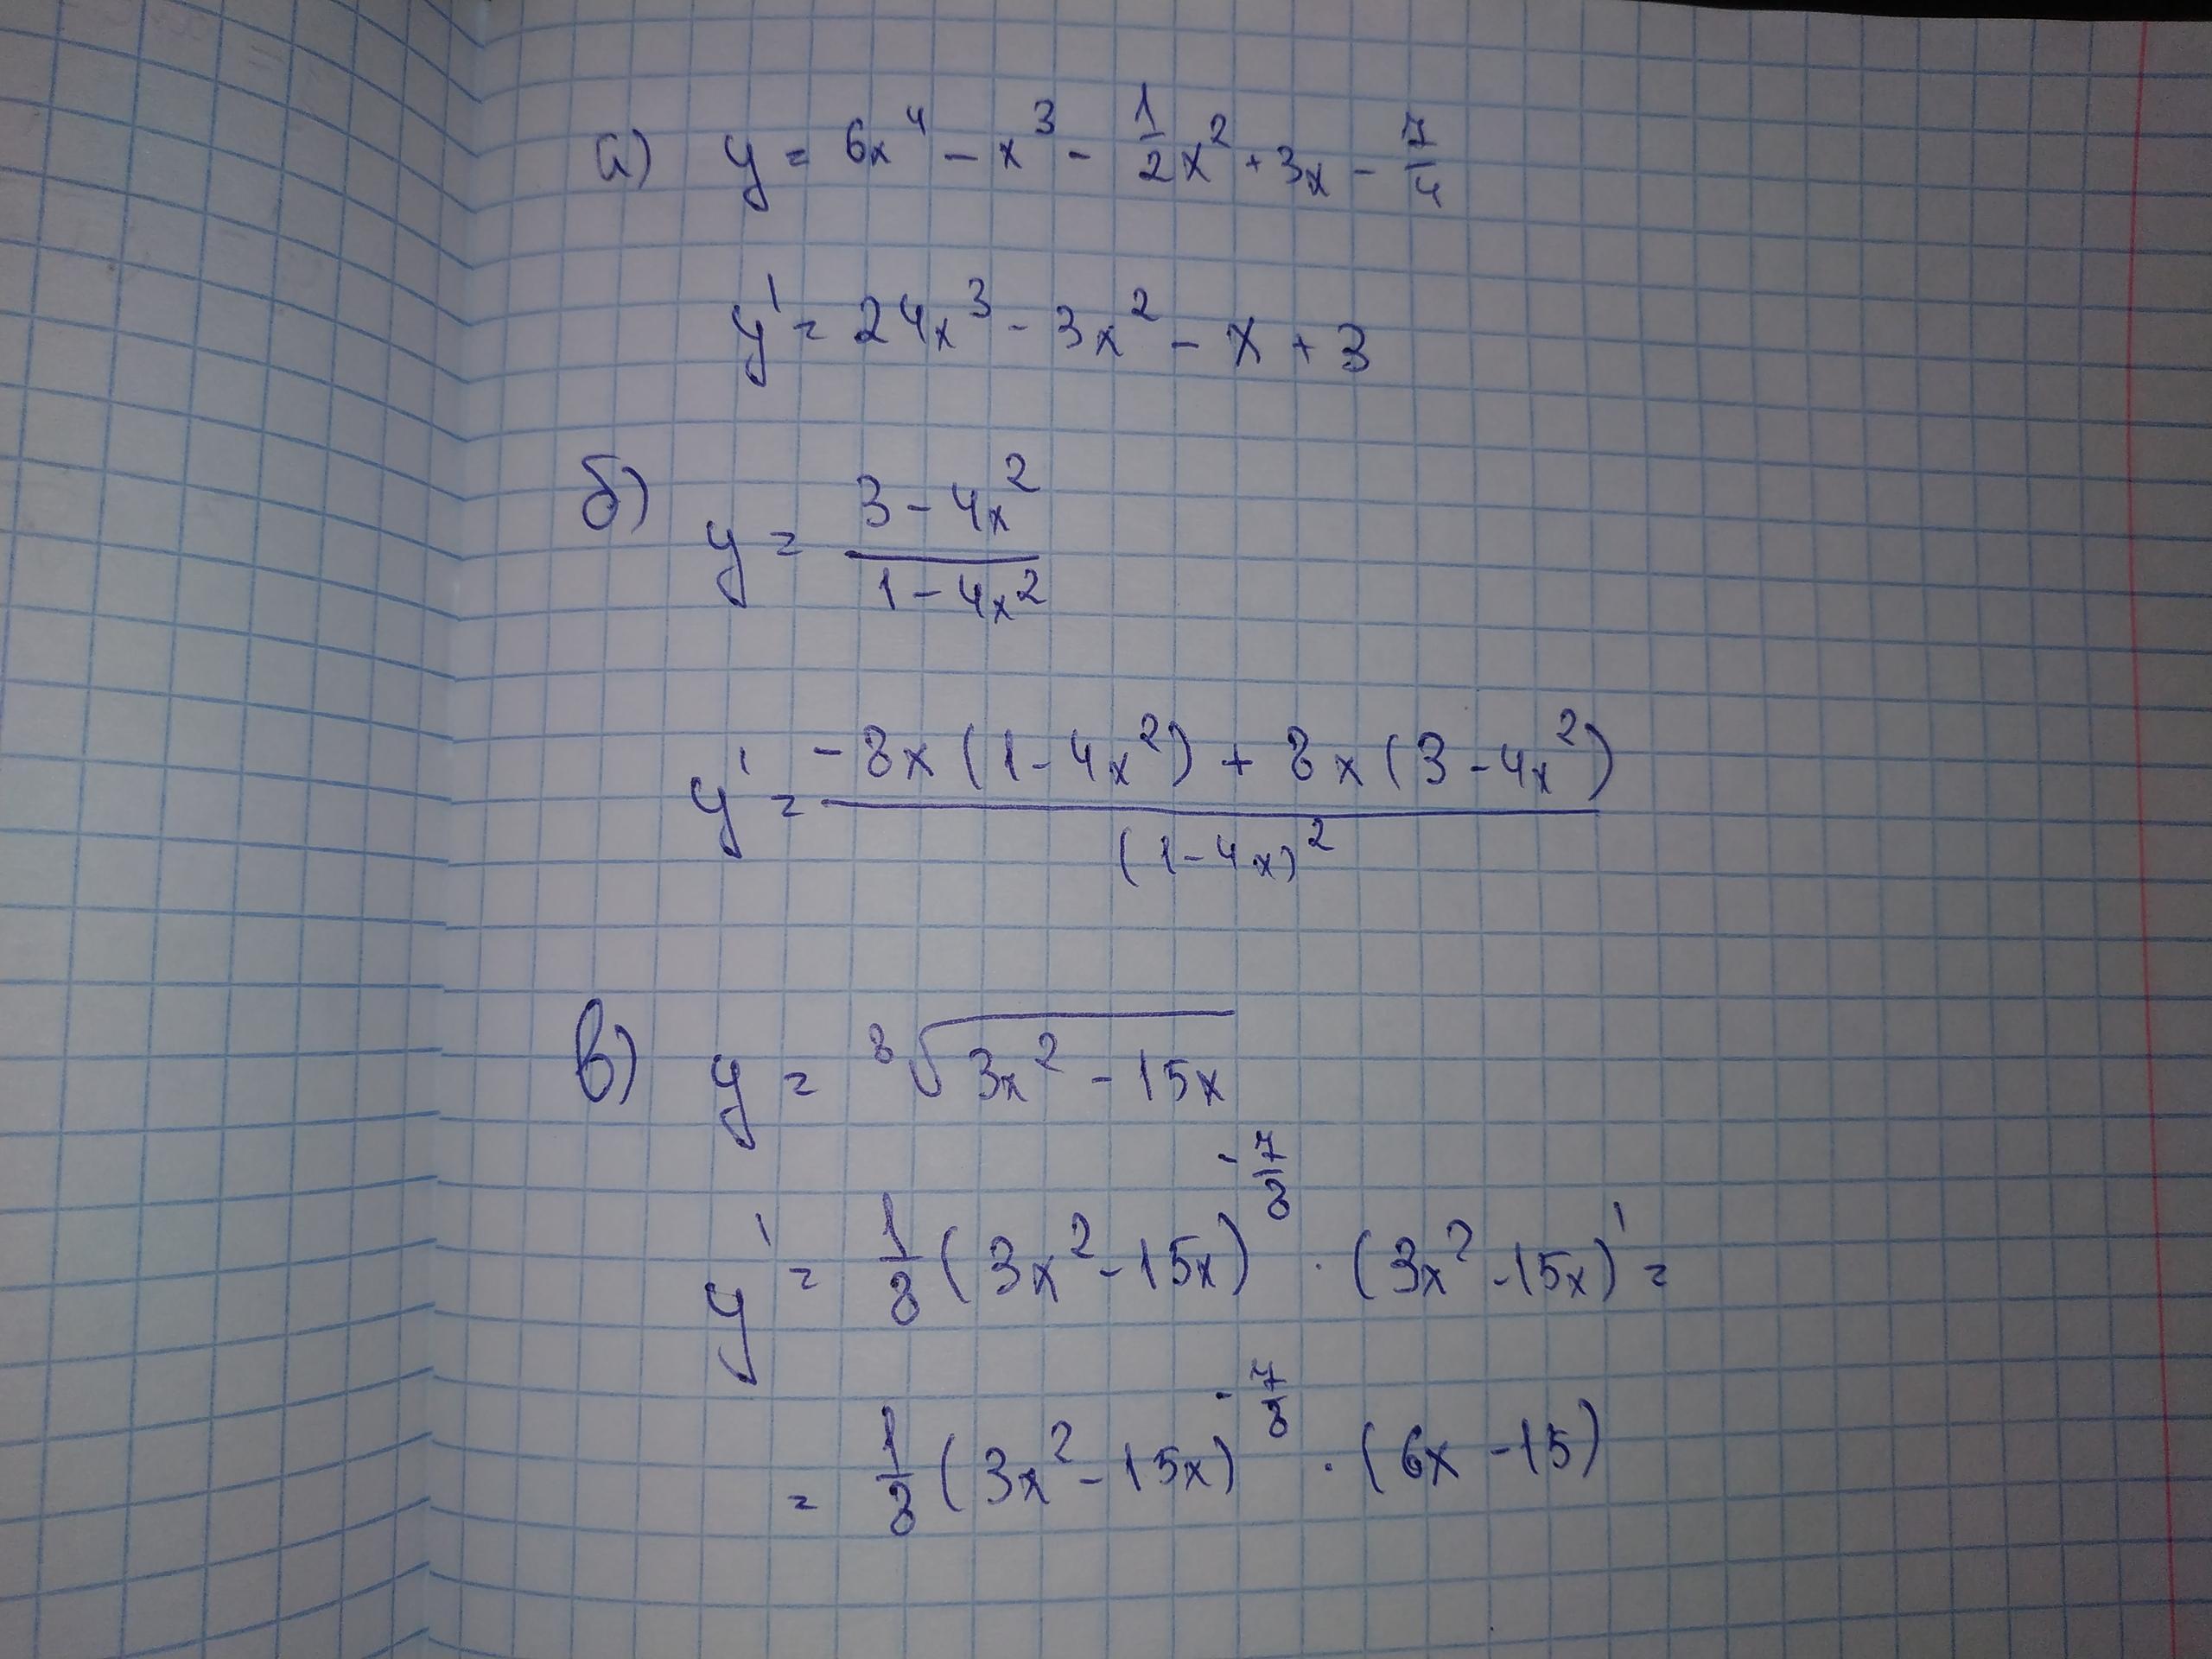 а) y = 6x⁴ - x³ - 1/2 x² + 3x - 7/4
y' = 24x³ - 3x² - x + 3
б) y = (3 - 4x²)/(1 - 4x²)
y' = (-8x(1 - 4x²) + 8x(3 - 4x²))/(1 - 4x)²
в) y = ⁸√(3x² - 15x)
y' = 1/8 (3x² - 15x)^(-7/8) · (3x² - 15x)' =
= 1/8 (3x² - 15x)^(-7/8) · (6x - 15)